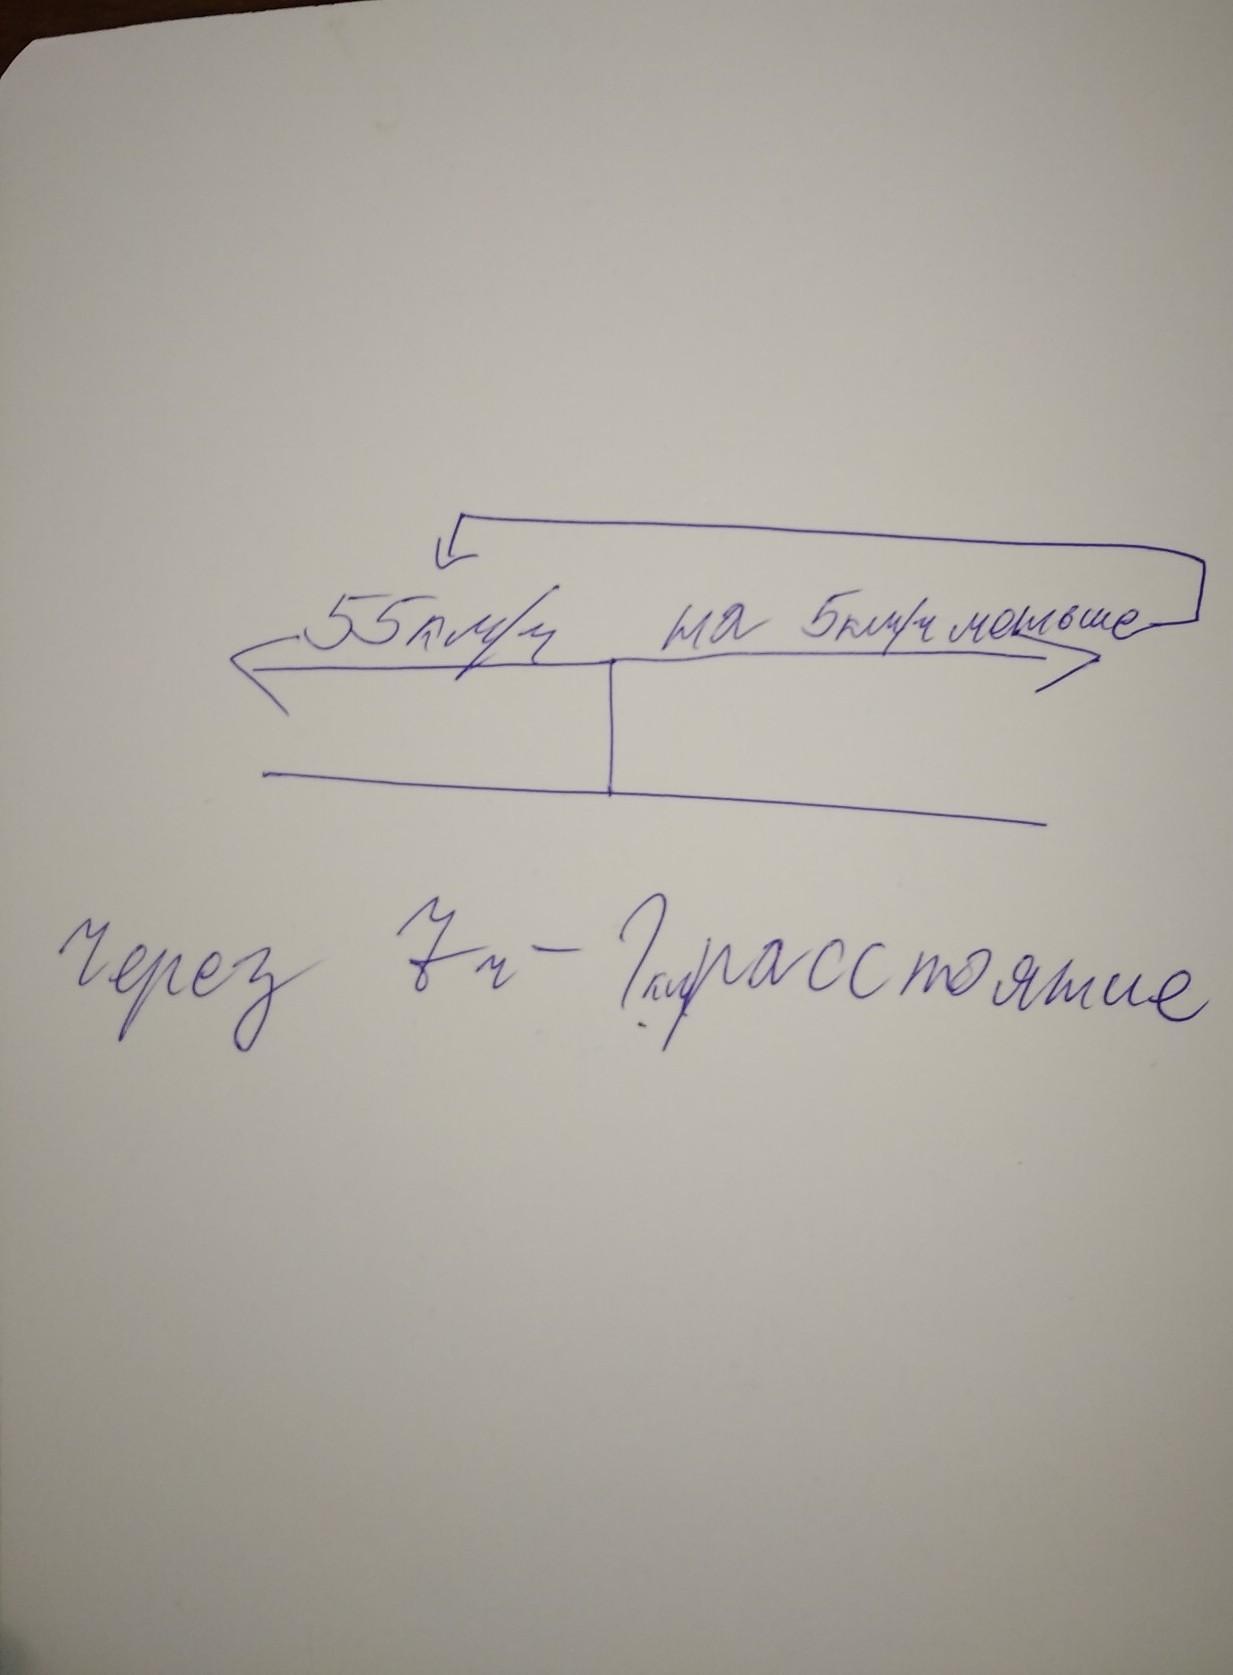 55км/ч на 5км/ч меньше
Через 7ч - ? км расстояние